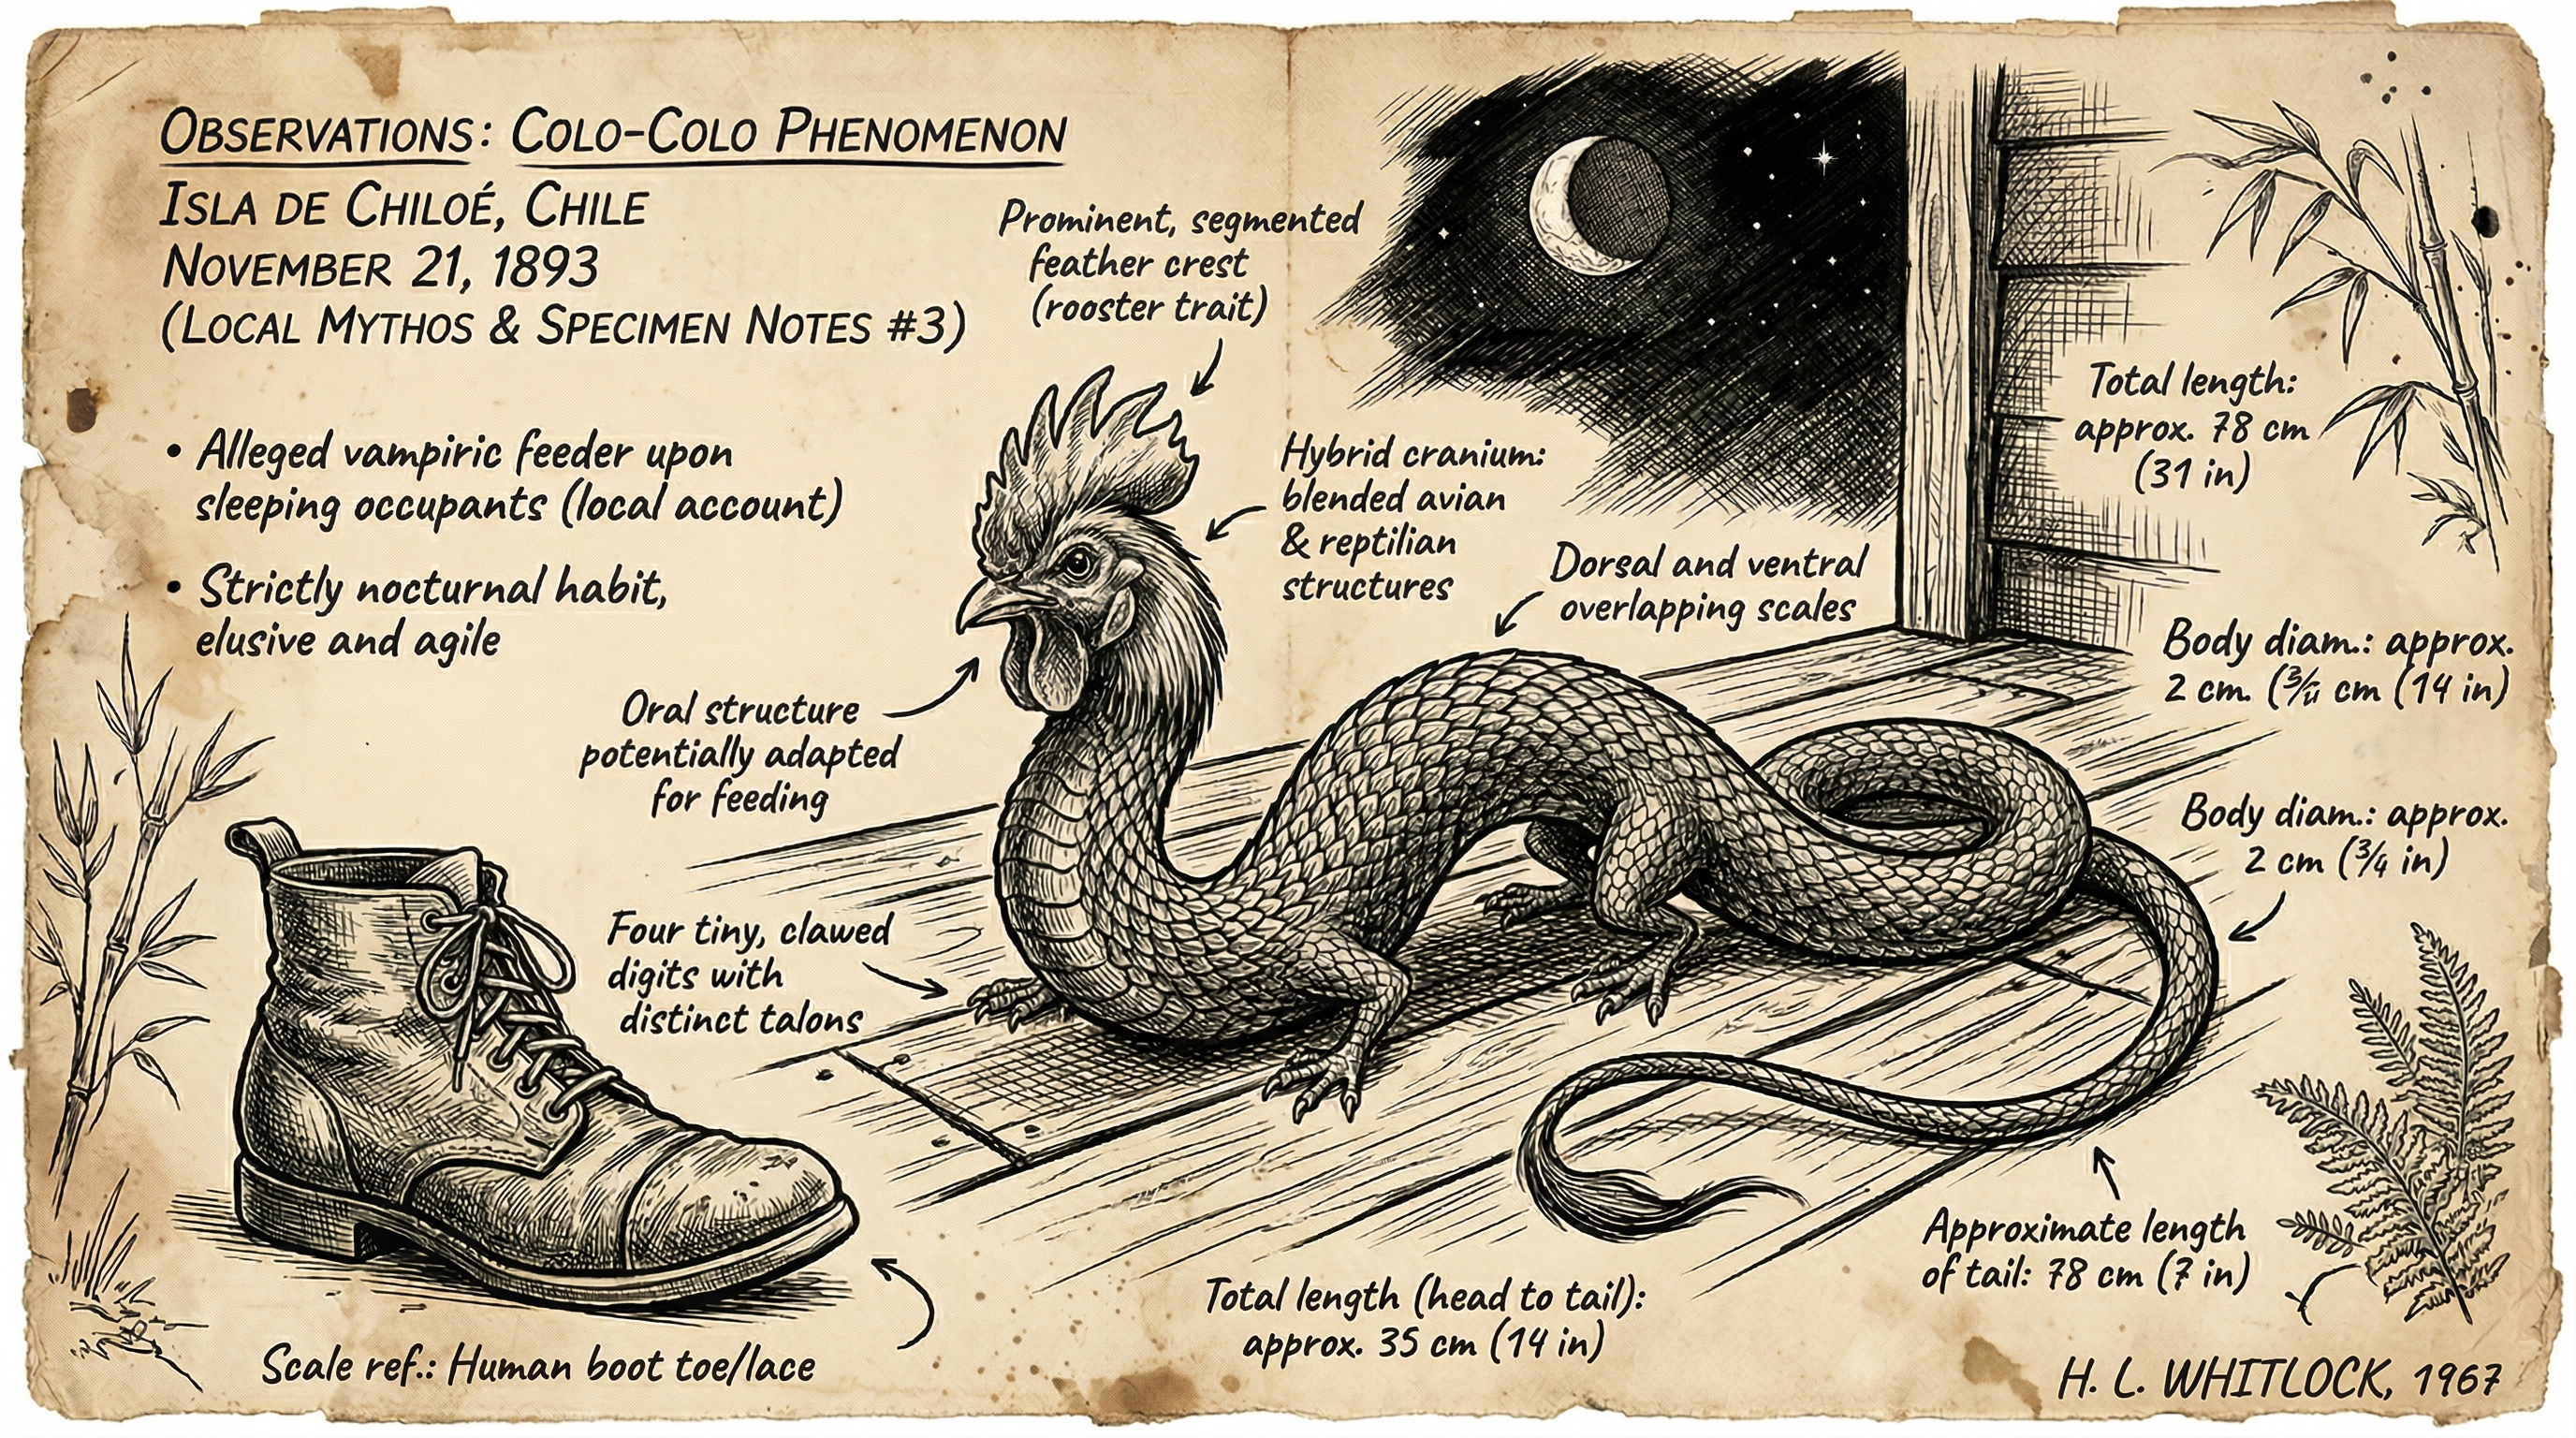 OBSERVATIONS: COLO-COLO PHENOMENON
ISLA DE CHILOÉ, CHILE
NOVEMBER 21, 1893
(LOCAL MYTHOS & SPECIMEN NOTES #3)
• Alleged vampiric feeder upon
sleeping occupants (local account)
• Strictly nocturnal habit,
elusive and agile
Prominent, segmented
feather crest
(rooster trait)
Hybrid cranium:
blended avian
& reptilian
structures
Dorsal and ventral
overlapping scales
Total length:
approx. 78 cm
(31 in)
Body diam.: approx.
2 cm. ( cm (14 in)
Oral structure
potentially adapted
for feeding
Body diam.: approx.
2 cm (3/4 in)
Four tiny, clawed
digits with
distinct talons
Approximate length
of tail: 78 cm (7 in)
Total length (head to tail):
approx. 35 cm (14 in)
Scale ref.: Human boot toe/lace
H. L. WHITLOCK, 1967